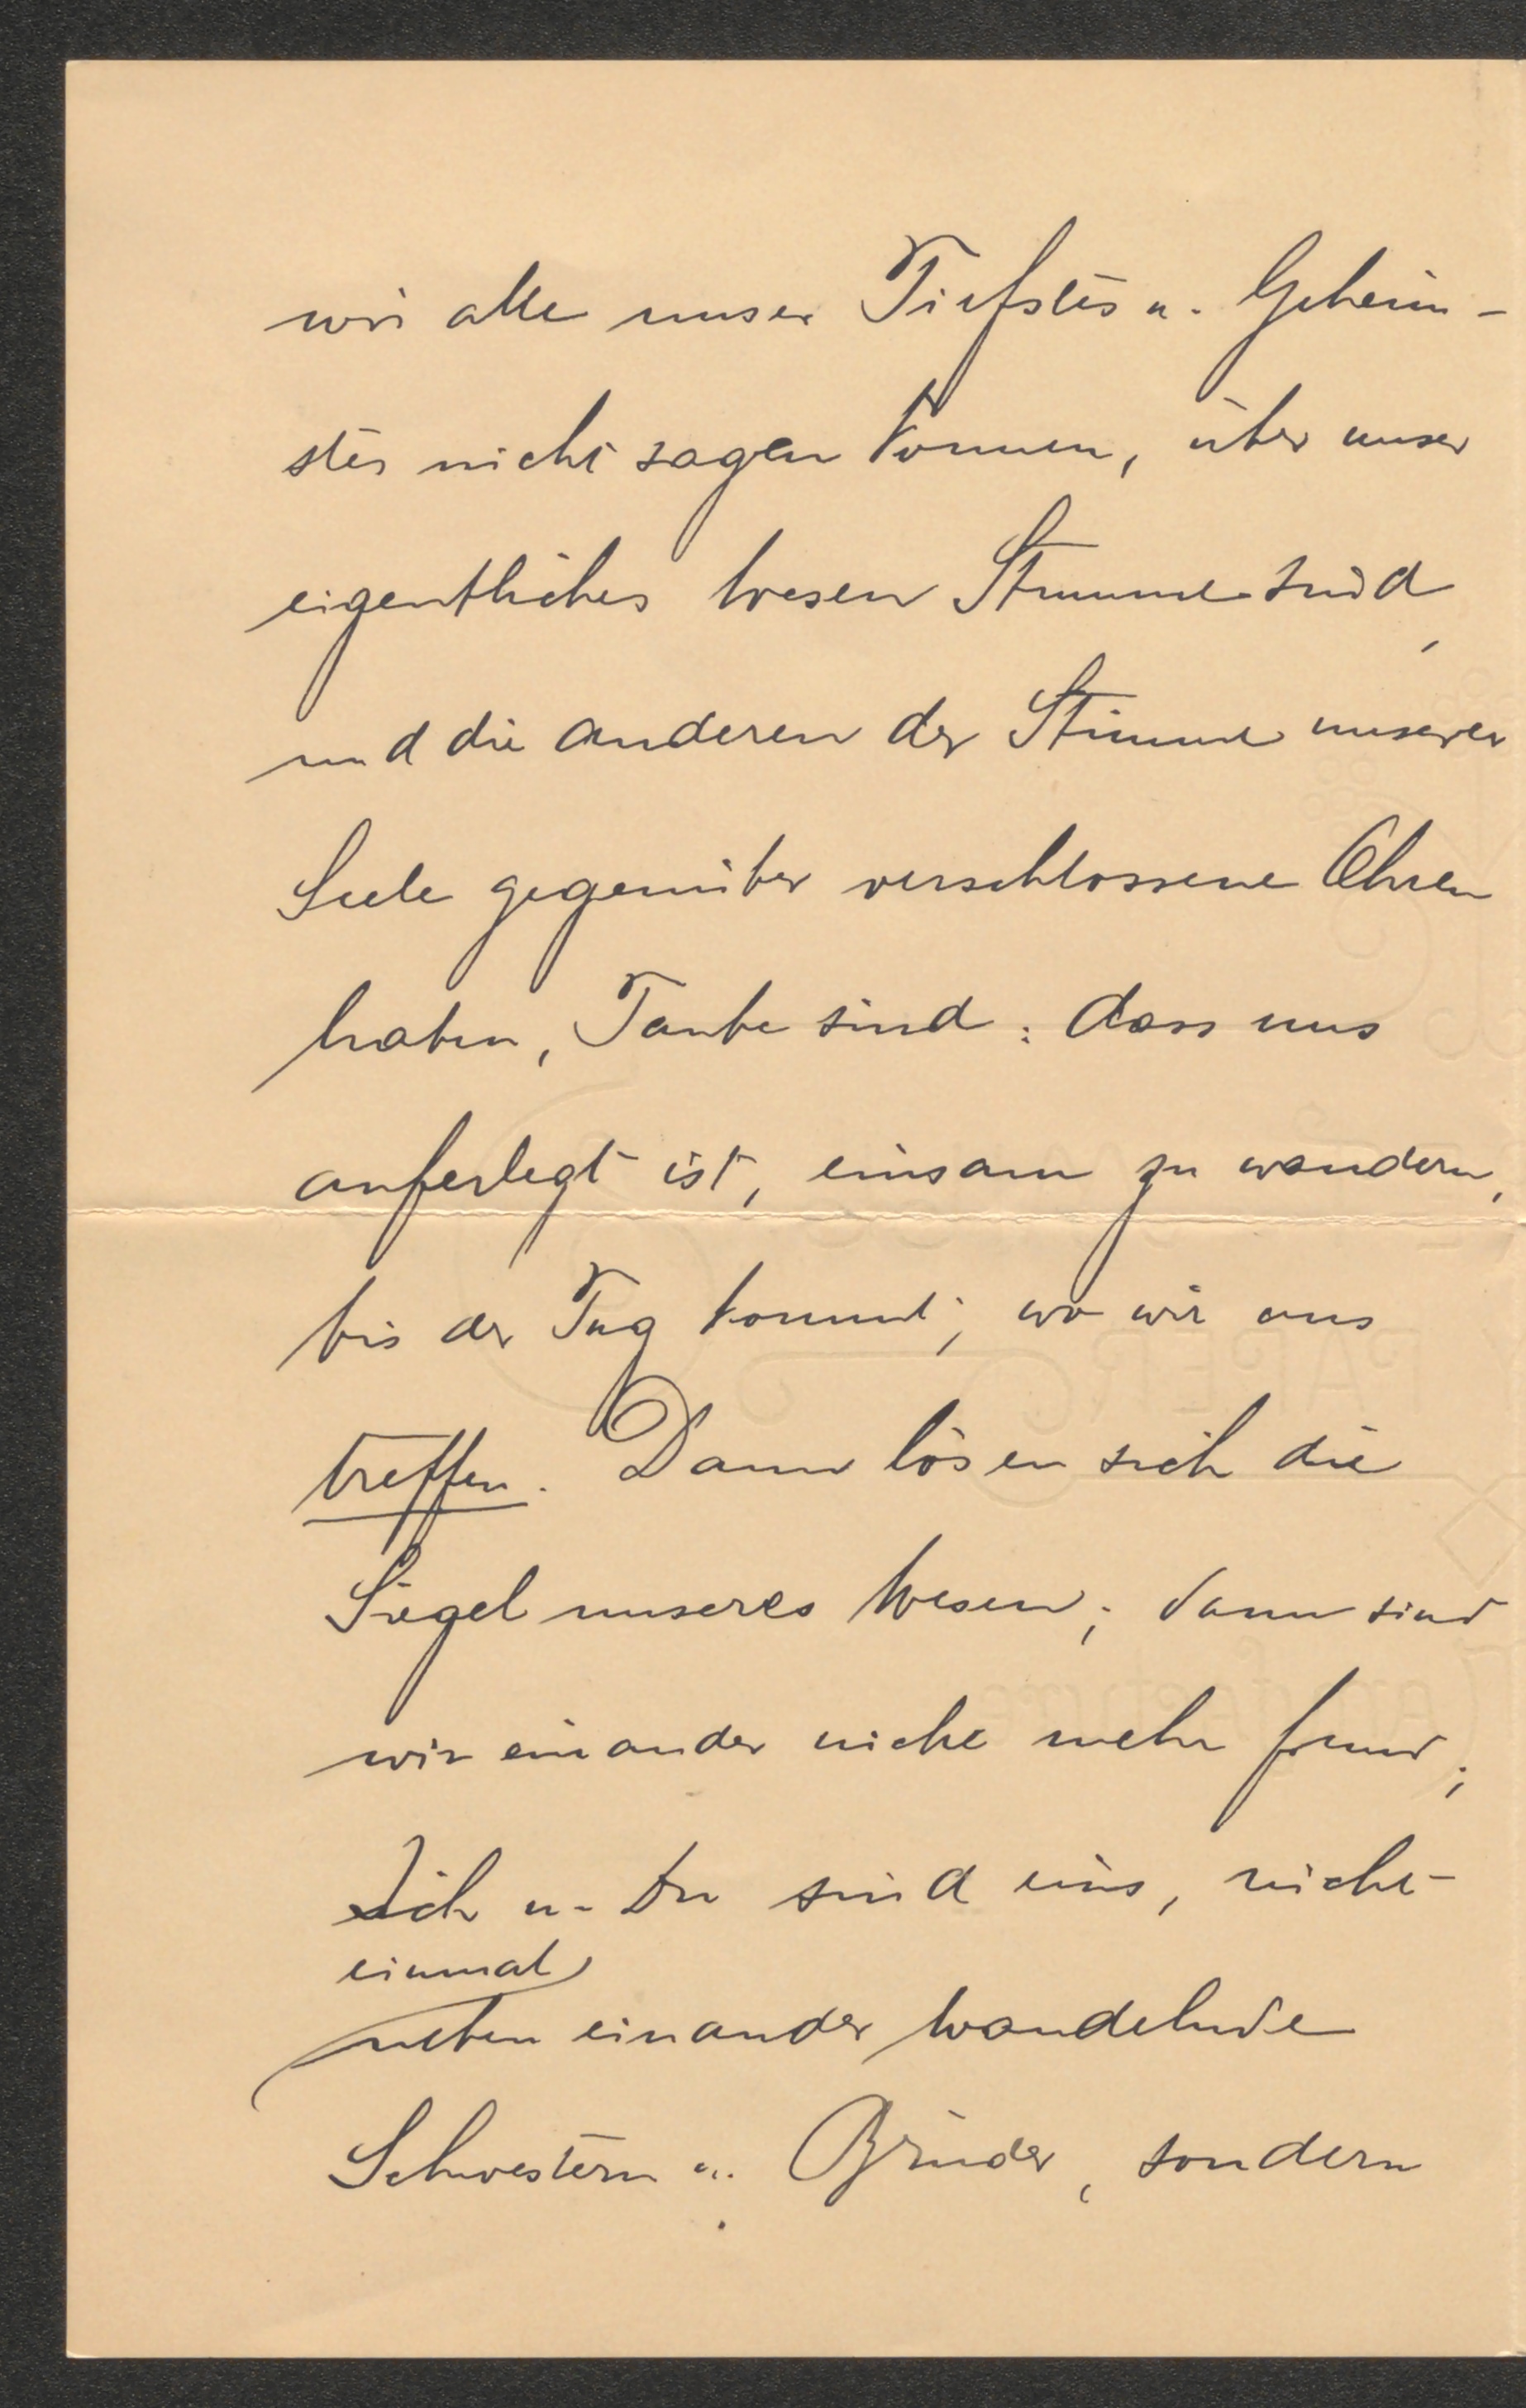 wir alle unser Tiefstes u. Geheim-
stes nicht sagen können, über unser
eigentliches Wesen Stumme sind,
und die anderen der Stimme unserer
Seele gegenüber verschlossene Ohren
haben, Taube sind: dass uns
auferlegt ist, einsam zu wandern,
bis der Tag kommt, wo wir uns
treffen. Dann lösen sich die
Siegel unseres Wesen; dann sind
wir einander nicht mehr fremd;
Ich u. Du sind eins, nicht
einmal
neben einander wandelnde
Schwestern u. Brüder, sondern